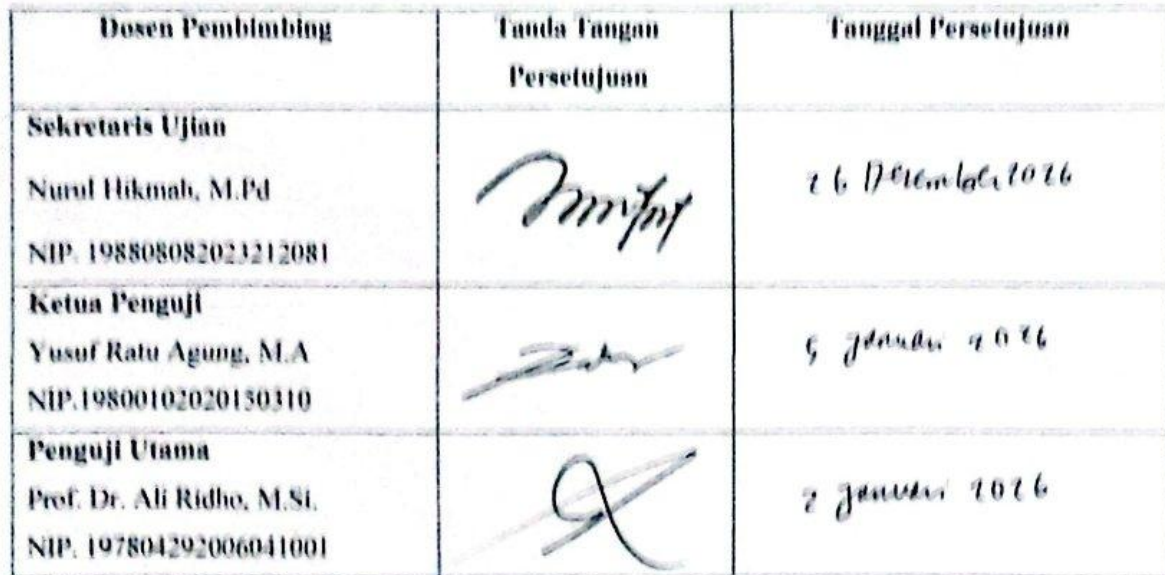 Dosen Pembimbing
Tanda Tangan
Persetujuan
Tanggal Persetujuan
Sekretaris Ujian
Nurul Hikmah, M.Pd
NIP. 198808082023212081
26 Desember 2026
Ketua Penguji
Yusuf Ratu Agung, M.A
NIP.19800102020150310
5 Januari 2026
Penguji Utama
Prof. Dr. Ali Ridho, M.Si.
NIP. 197804292006041001
2 Januari 2026